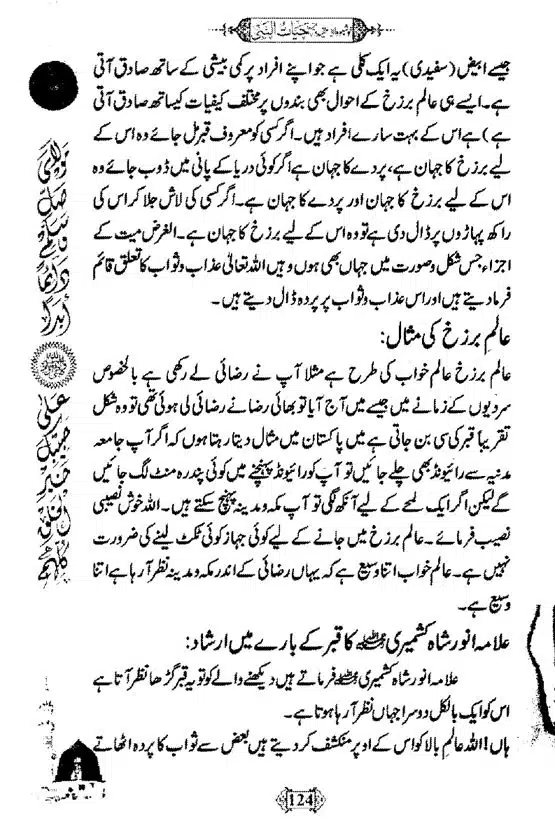 حیات النبی
جیسے ابیض (سفیدی) یہ ایک کلی ہے جو اپنے افراد پر کمی بیشی کے ساتھ صادق آتی
ہے۔ ایسے ہی عالم برزخ کے احوال بھی بندوں پر مختلف کیفیات کیساتھ صادق آتی
ہے) ہے اس کے بہت سارے افراد ہیں۔ اگر کسی کو معروف قبر مل جائے وہ اس کے
لیے برزخ کا جہان ہے، پردے کا جہان ہے اگر کوئی دریا کے پانی میں ڈوب جائے وہ
اس کے لیے برزخ کا جہان اور پردے کا جہان ہے۔ اگر کسی کی لاش جلا کر اس کی
راکھ پہاڑوں پر ڈال دی ہے تو وہ اس کے لیے برزخ کا جہان ہے۔ الغرض میت کے
اجزاء جس شکل وصورت میں جہاں بھی ہوں وہیں اللہ تعالیٰ عذاب و ثواب کا تعلق قائم
فرما دیتے ہیں اور اس عذاب و ثواب پر پردہ ڈال دیتے ہیں۔
عالم برزخ کی مثال:
عالم برزخ عالم خواب کی طرح ہے مثلا آپ نے رضائی لے رکھی ہے بالخصوص
سردیوں کے زمانے میں جیسے میں آج آیا تو بھائی رضا نے رضائی لی ہوئی تھی تو وہ شکل
تقریباً قبر کی سی بن جاتی ہے میں پاکستان میں مثال دیتا رہتا ہوں کہ اگر آپ جامعہ
مدنیہ سے رائیونڈ بھی چلے جائیں تو آپ کو رائیونڈ پہنچتے میں کوئی پندرہ منٹ لگ جائیں
گے لیکن اگر ایک لمحے کے لیے آنکھ لگی تو آپ مکہ و مدینہ پہنچ سکتے ہیں۔ اللہ خوش نصیبی
نصیب فرمائے۔ عالم برزخ میں جانے کے لیے کوئی جہاز کوئی ٹکٹ لینے کی ضرورت
نہیں ہے۔ عالم خواب اتنا وسیع ہے کہ یہاں رضائی کے اندر مکہ و مدینہ نظر آ رہا ہے اتنا
وسیع ہے۔
علامہ انور شاہ کشمیری رحمۃ اللہ علیہ کا قبر کے بارے میں ارشاد:
علامہ انور شاہ کشمیری رحمۃ اللہ علیہ فرماتے ہیں دیکھنے والے کو تو یہ قبر گڑھا نظر آتا ہے
اس کو ایک بالکل دوسرا جہاں نظر آ رہا ہوتا ہے۔
ہاں! اللہ عالم بالا کو اس کے اوپر منکشف کر دیتے ہیں بعض سے ثواب کا پردہ اٹھاتے
124
مولای صل وسلم دائما ابدا
علی حبیبک خیر الخلق کلهم